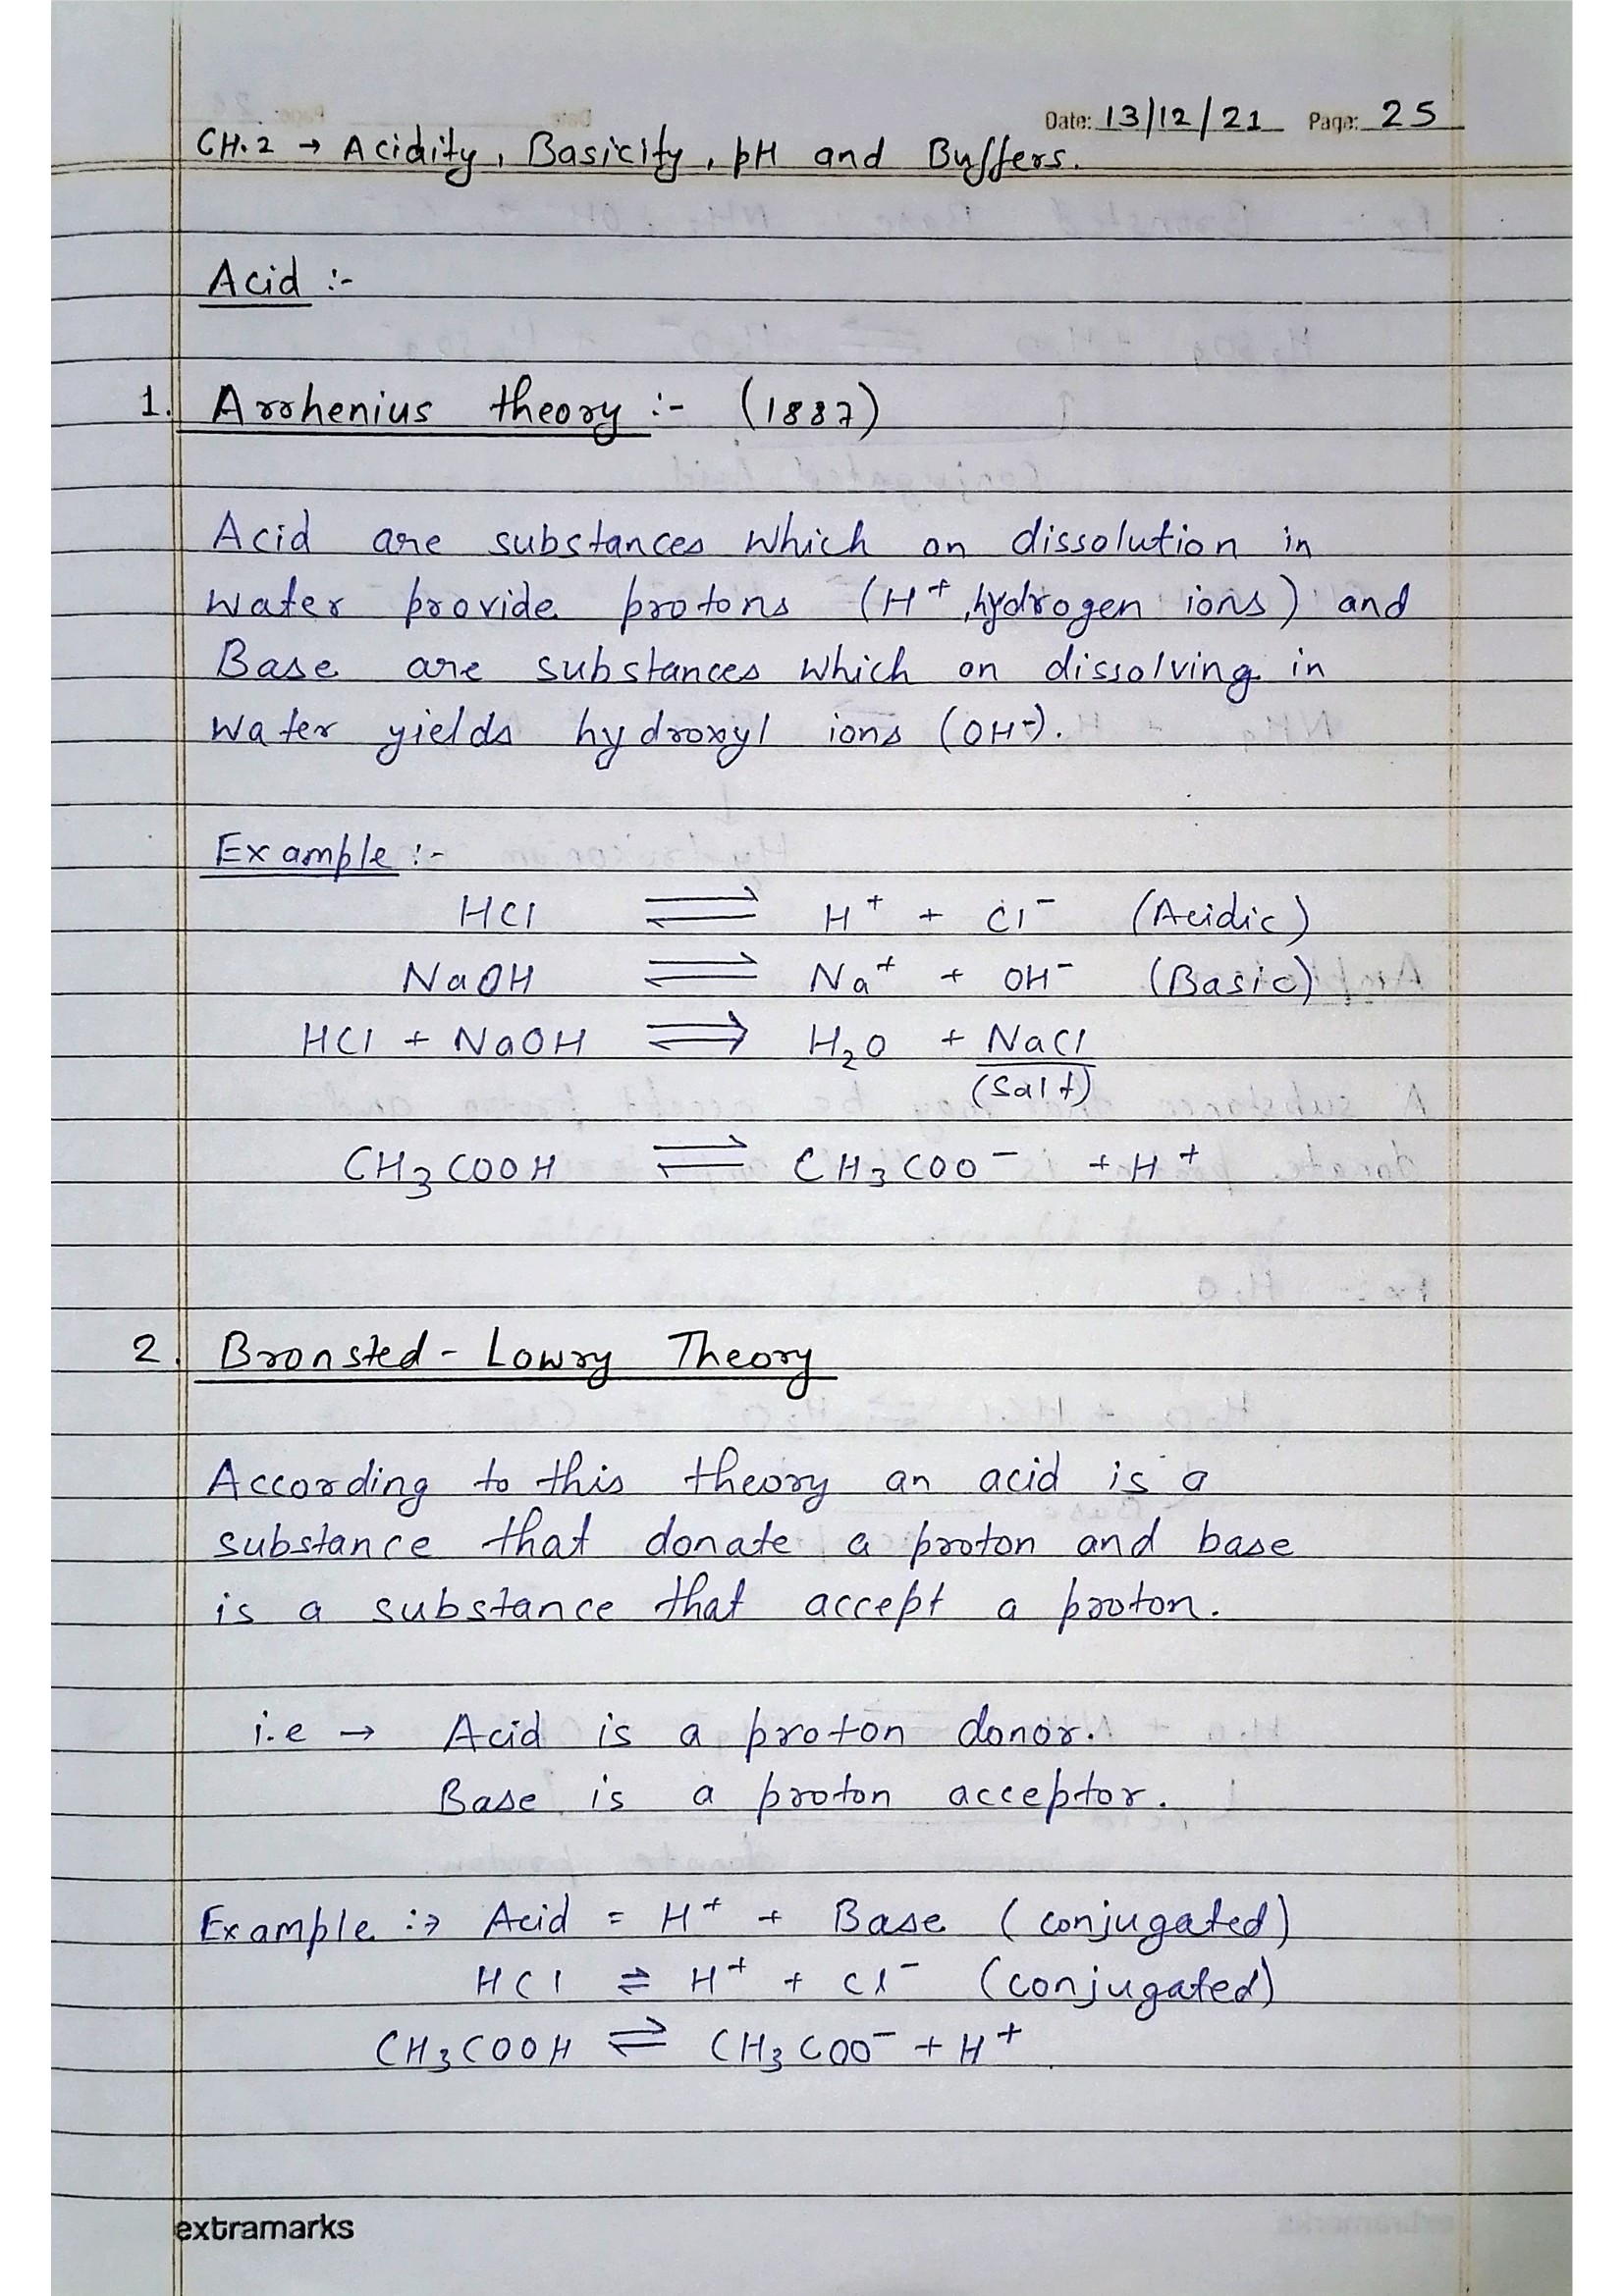 Date: 13/12/21 Page: 25
CH.2 → Acidity, Basicity, pH and Buffers.
Acid :-
1. Arrhenius theory :- (1887)
Acid are substances which on dissolution in
water provide protons (H+, hydrogen ions) and
Base are substances which on dissolving in
water yields hydroxyl ions (OH-).
Example :-
HCl ⇌ H+ + Cl- (Acidic)
NaOH ⇌ Na+ + OH- (Basic)
HCl + NaOH ⇌ H2O + NaCl
(Salt)
CH3COOH ⇌ CH3COO- + H+
2. Bronsted - Lowry Theory
According to this theory an acid is a
substance that donate a proton and base
is a substance that accept a proton.
i.e → Acid is a proton donor.
Base is a proton acceptor.
Example :→ Acid = H+ + Base (conjugated)
HCl ⇌ H+ + Cl- (conjugated)
CH3COOH ⇌ CH3COO- + H+
extramarks